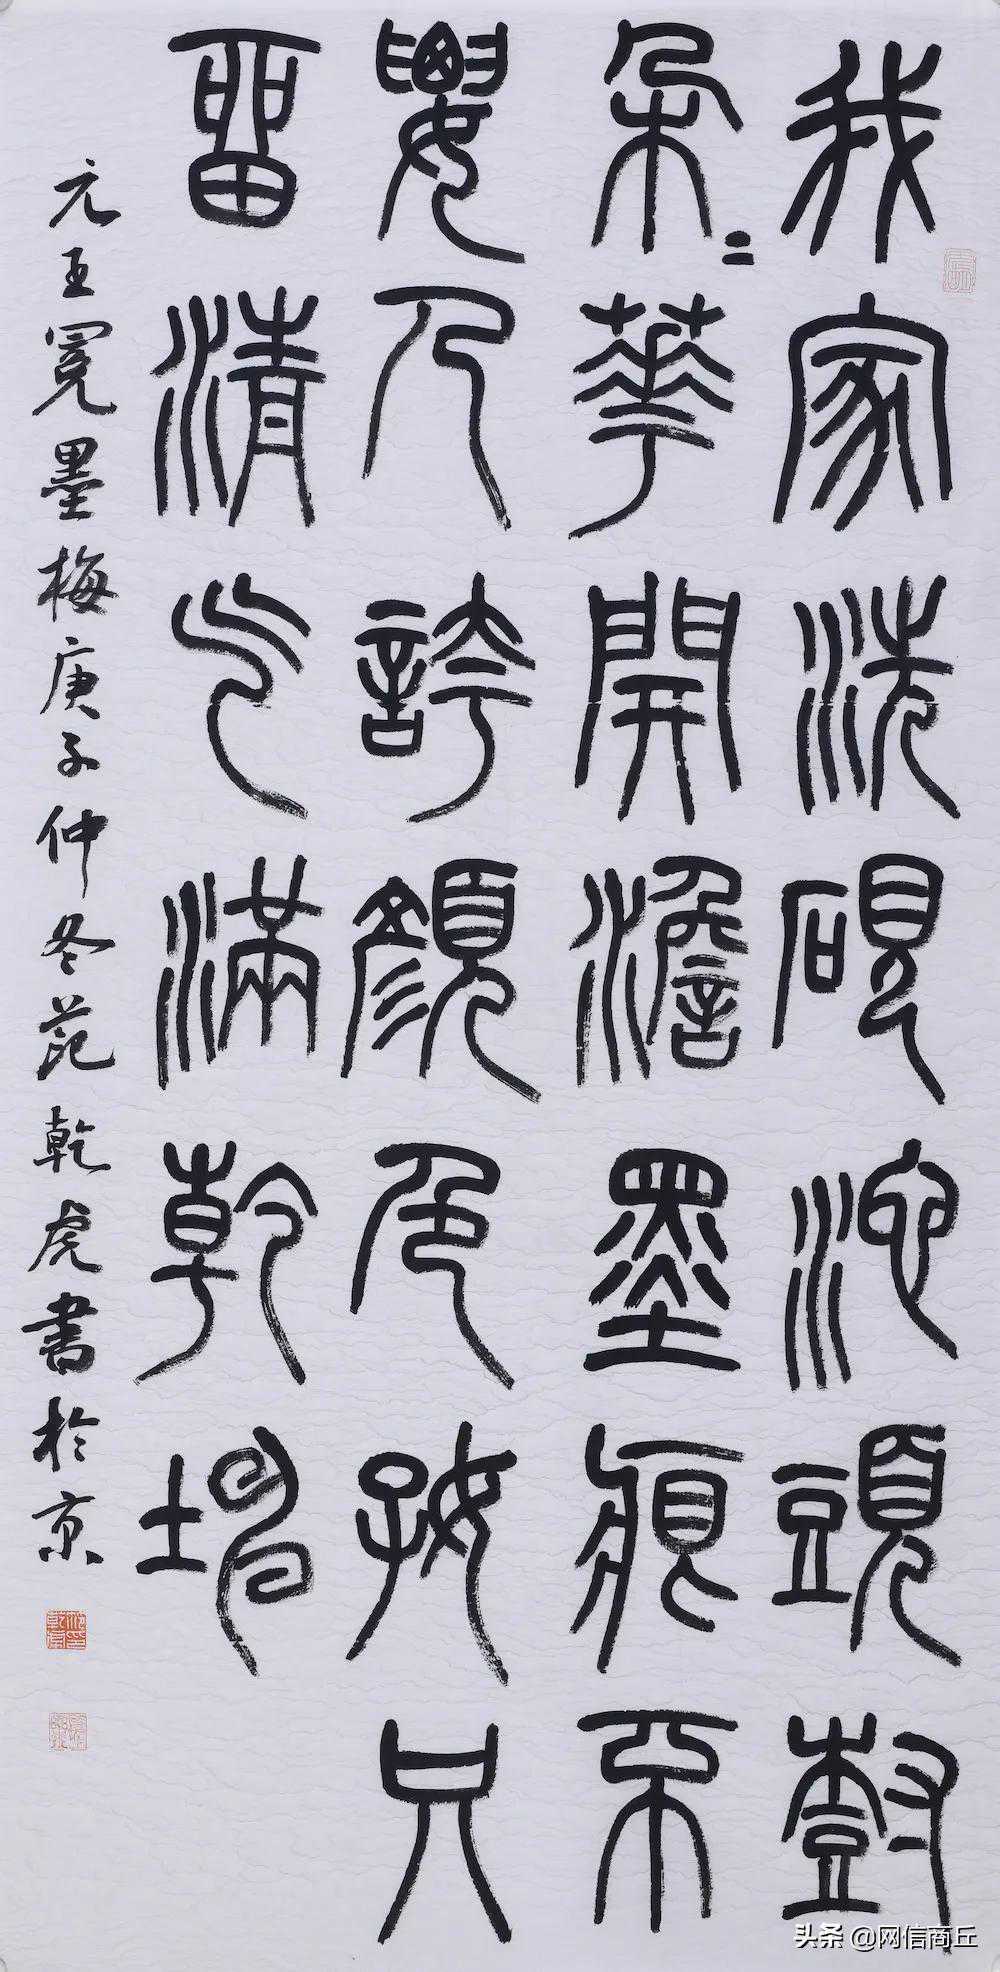 我家洗硯池頭樹
朵〻華開澹墨痕不
要人誇顏色好只
留清气滿乾坤
元王冕墨梅庚子仲冬范乾虎書於京
头条 @网信商丘